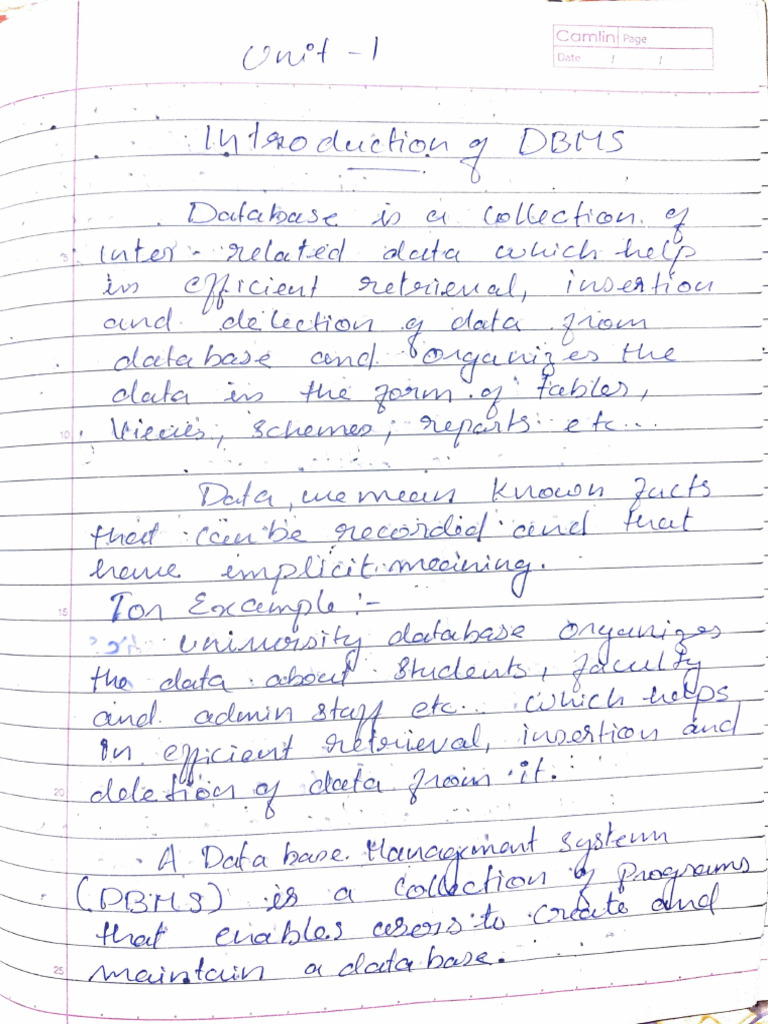 Unit - 1
Camlin Page
Date / /
Introduction of DBMS
Database is a collection of
inter - related data which help
in efficient retrieval, insertion
and deletion of data from
database and organizes the
data in the form of tables,
Views, schemes, reports etc...
Data, we mean known facts
that can be recorded and that
have implicit meaning.
For Example :-
University database organizes
the data about students, faculty
and admin staff etc... which helps
in efficient retrieval, insertion and
deletion of data from it.
A Data base Management system
(DBMS) is a collection of programs
that enables users to create and
maintain a database.
5
10
15
20
25